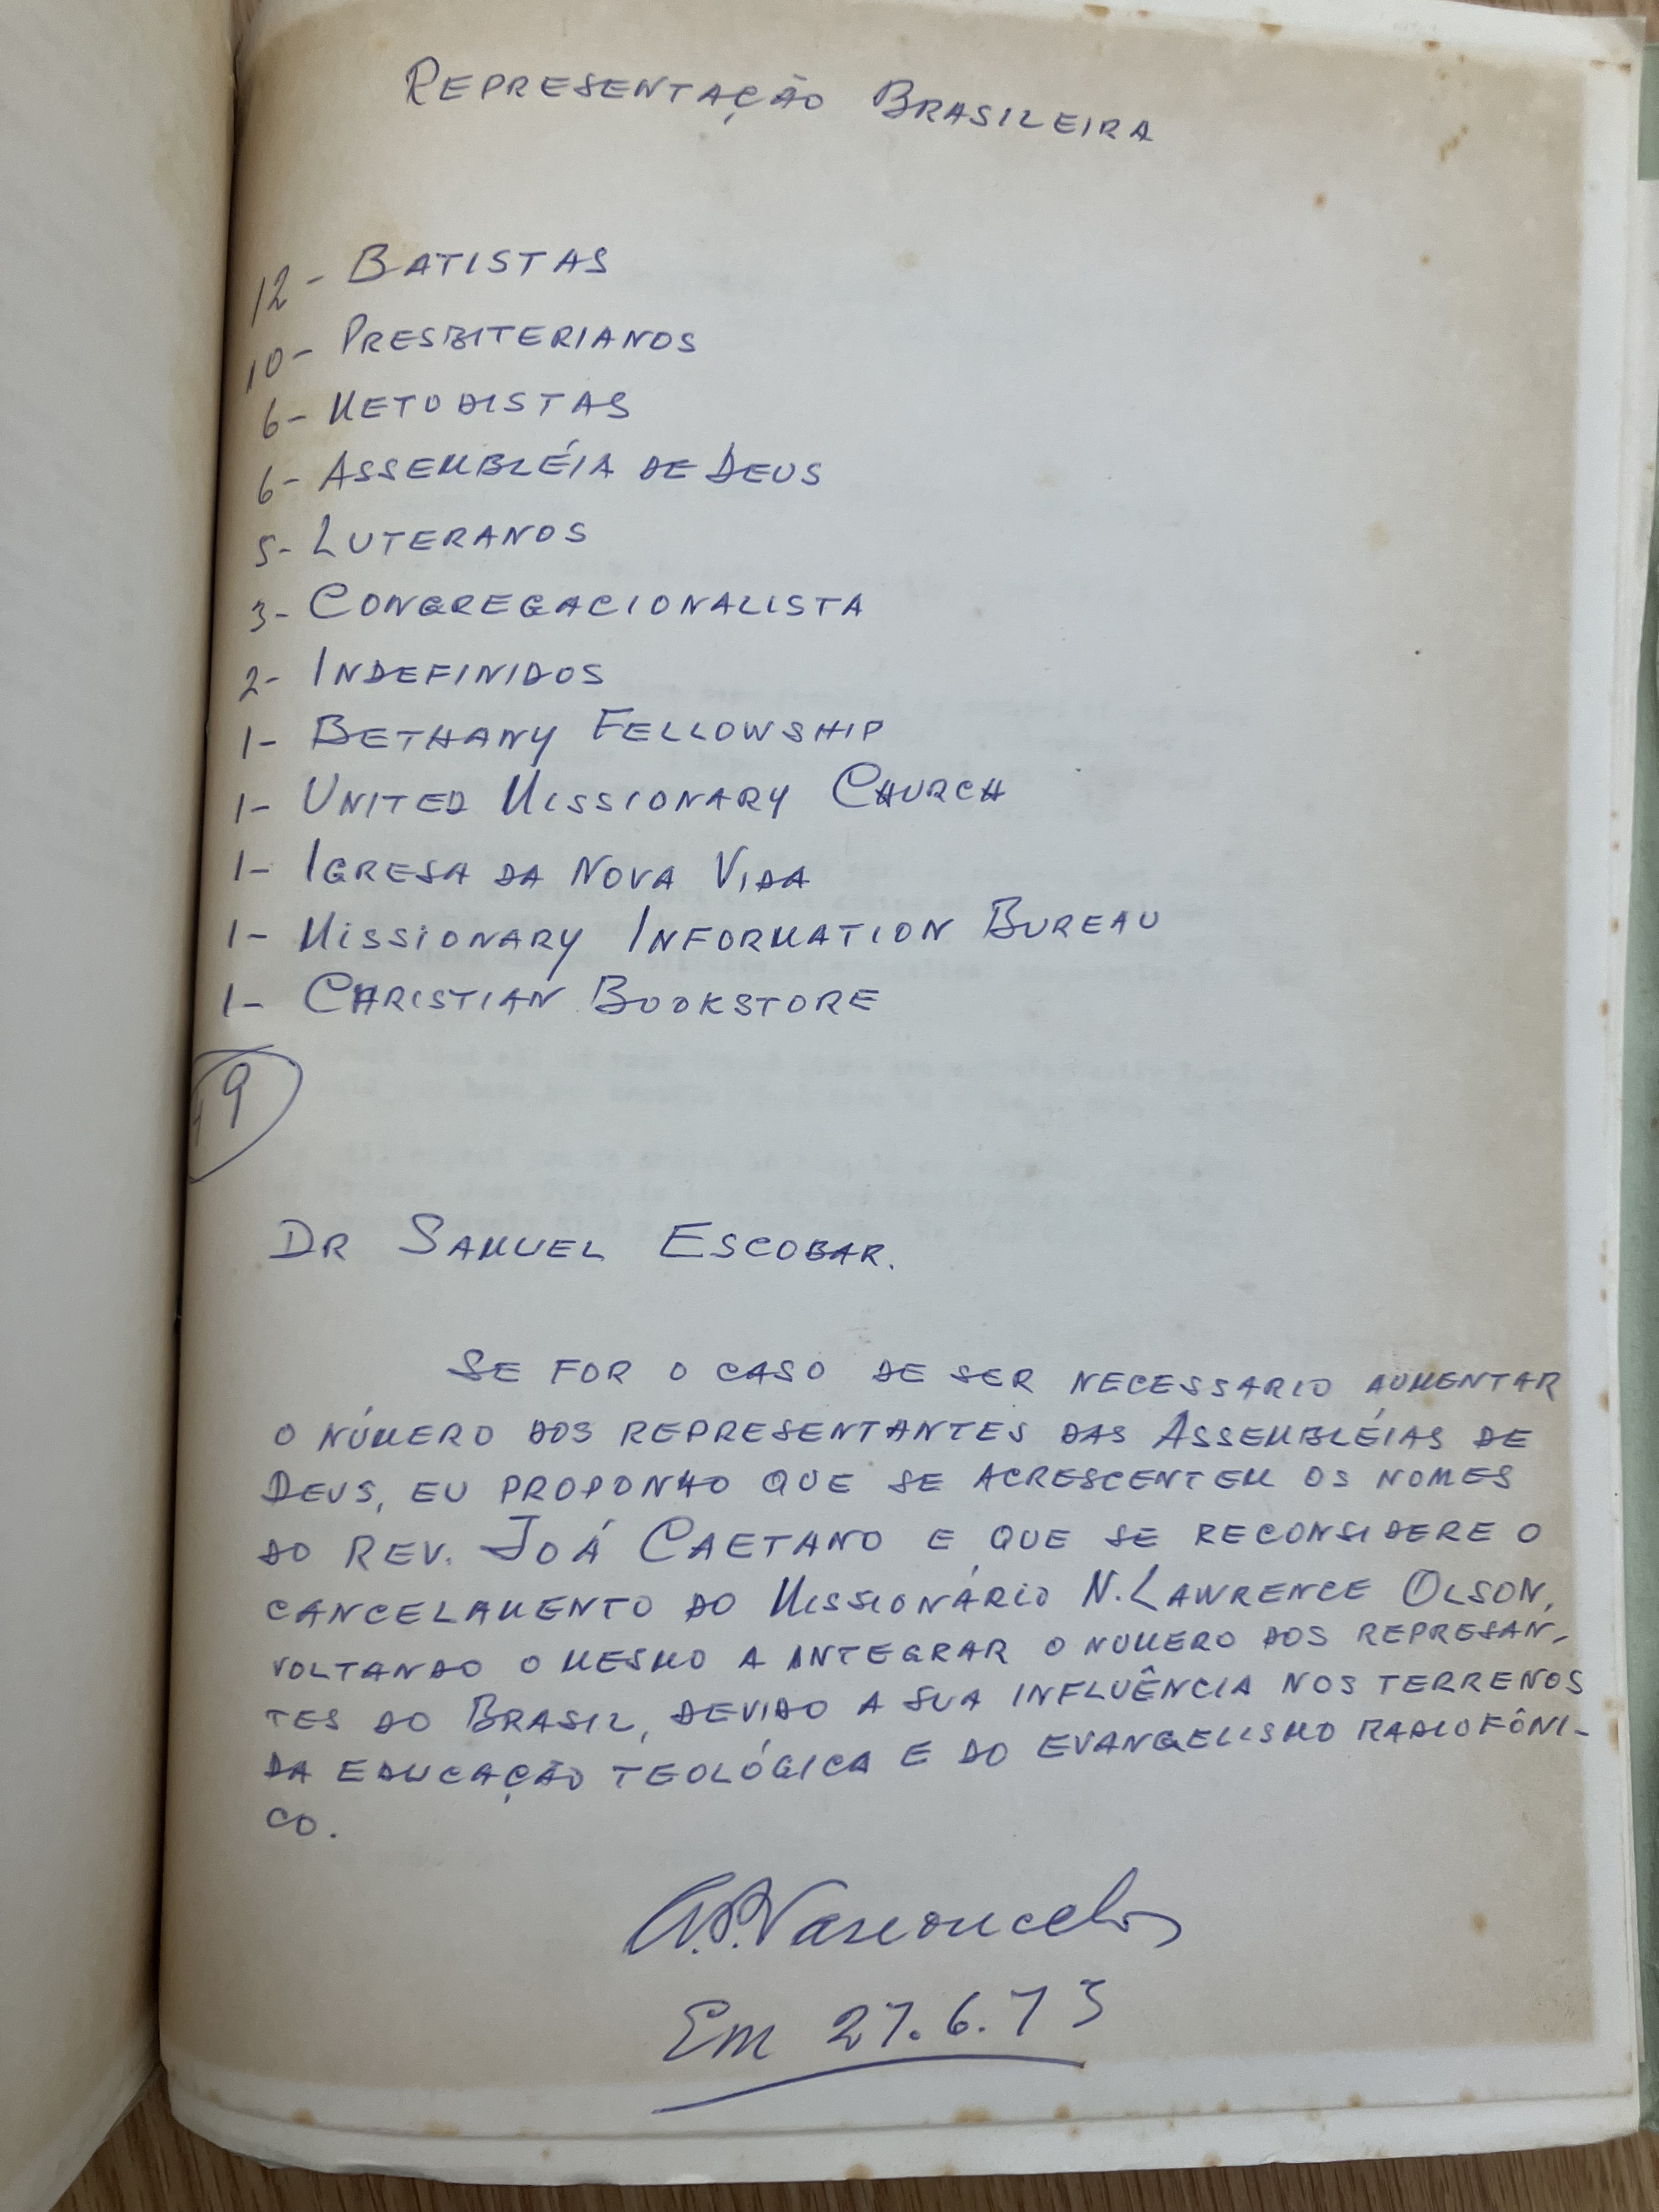 REPRESENTAÇÃO BRASILEIRA
12 - BATISTAS
10 - PRESBITERIANOS
6 - METODISTAS
6 - ASSEMBLÉIA DE DEUS
5 - LUTERANOS
3 - CONGREGACIONALISTA
2 - INDEFINIDOS
1 - BETHANY FELLOWSHIP
1 - UNITED MISSIONARY CHURCH
1 - IGRESA DA NOVA VIDA
1 - MISSIONARY INFORMATION BUREAU
1 - CHRISTIAN BOOKSTORE
49
DR SAMUEL ESCOBAR.
SE FOR O CASO DE SER NECESSARIO AUMENTAR
O NÚMERO DOS REPRESENTANTES DAS ASSEMBLÉIAS DE
DEUS, EU PROPONHO QUE SE ACRESCENTEM OS NOMES
DO REV. JOÁ CAETANO E QUE SE RECONSIDERE O
CANCELAMENTO DO MISSIONÁRIO N. LAWRENCE OLSON,
VOLTANDO O MESMO A INTEGRAR O NÚMERO DOS REPRESAN-
TES DO BRASIL, DEVIDO A SUA INFLUÊNCIA NOS TERRENOS
DA EDUCAÇÃO TEOLÓGICA E DO EVANGELISMO RADIOFÔNI-
CO.
Vasconcelos
Em 27.6.73